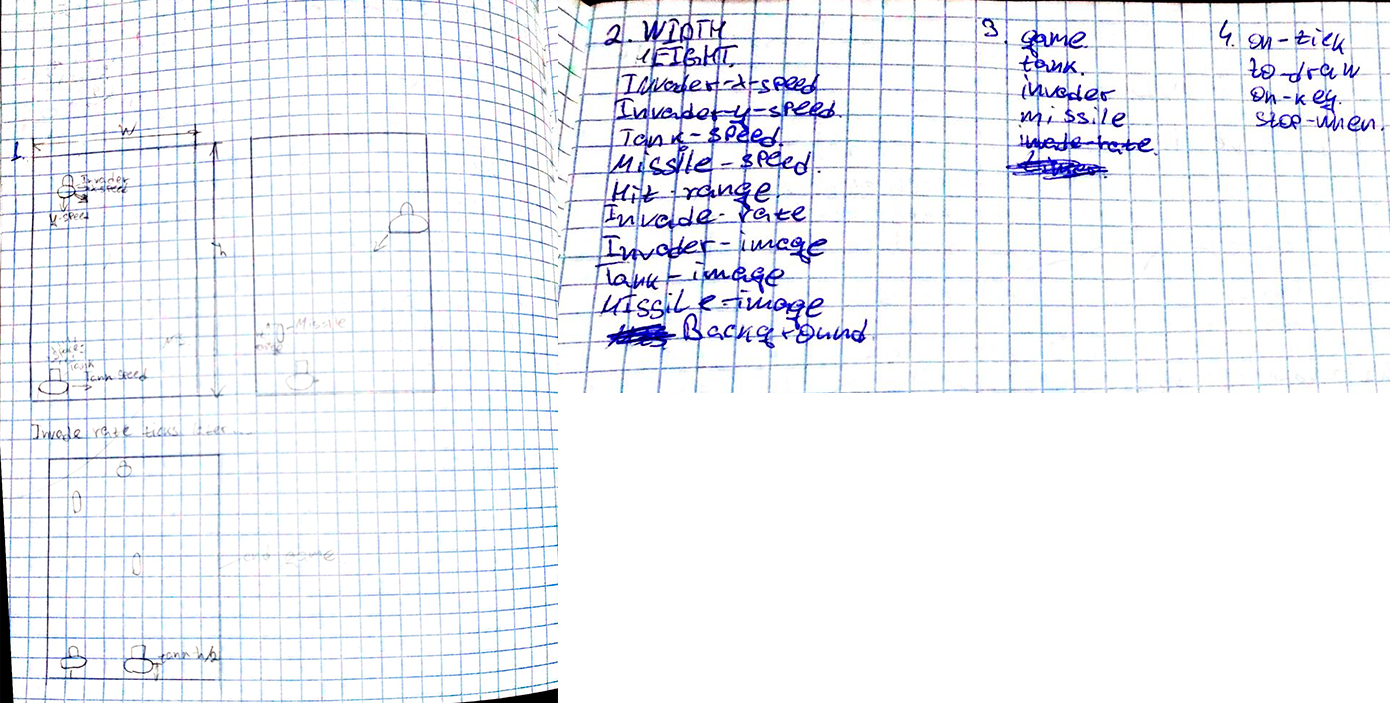 1.
W
Invader
speed
y-speed
h
Missile
Tank
Tank speed
Invade rate ticks
game
tank h/2
2. WIDTH
HEIGHT
Invader-x-speed
Invader-y-speed.
Tank-speed.
Missile-speed.
Hit-range
Invade-rate
Invader-image
Tank-image
Missile-image
Background
3. game
tank.
invader
missile
invade-rate.
4. on-tick
to-draw
on-key.
stop-when.